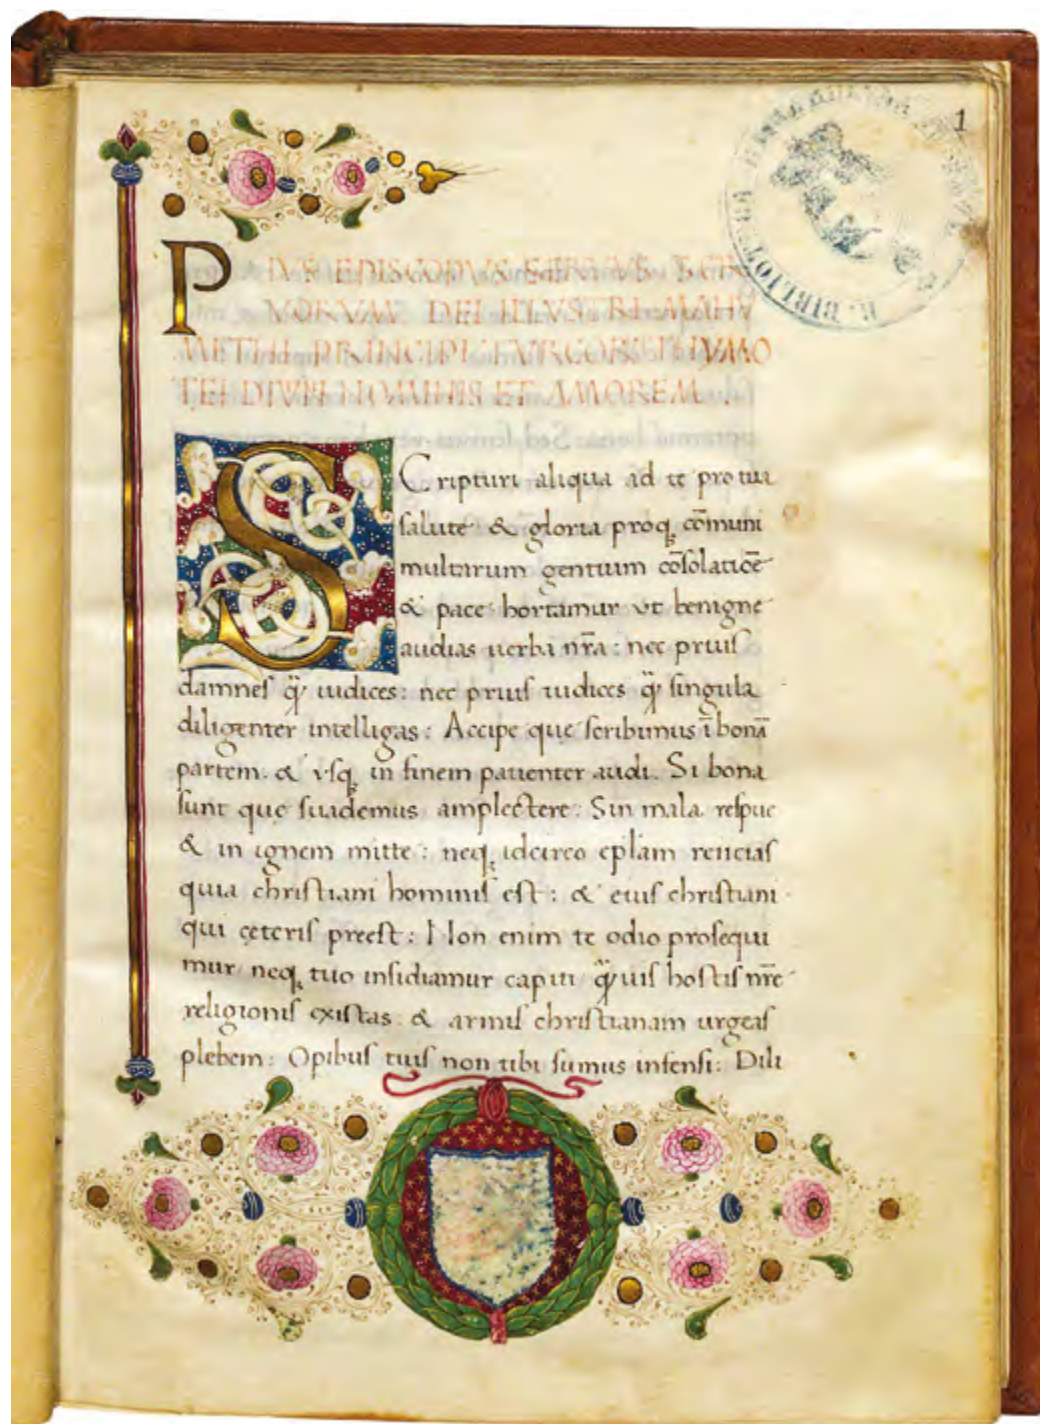 1
R. BIBLIOTECA
PIVS EPISCOPVS SERVVS SERV
VORVM DEI ILLVSTRI MAHV
METHI PRINCIPI TVRCORVM TIMO
REM DIVINI NOMINIS ET AMOREM .
SCripturi aliqua ad te pro tua
salute & gloria proq, cōmuni
multarum gentium cōsolatiōe
& pace hortamur vt benigne
audias uerba nr̄a : nec prius
damnes q̄ iudices : nec prius iudices q̄ singula
diligenter intelligas : Accipe que scribimus ī bonā
partem . & vsq, in finem patienter audi . Si bona
sunt que suademus amplectere : Sin mala respue
& in ignem mitte : neq, idcirco ep̄lam reicias
quia christiani hominis est : & eius christiani
qui çeteris preest : Non enim te odio prosequi
mur neq, tuo insidiamur capiti q̄uis hostis nr̄e
religionis existas & armis christianam urgeas
plebem : Opibus tuis non tibi sumus infensi : Dili